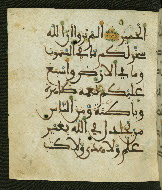 الحمير الم تروا ان الله
سخر لكم ما في السموت
وما في الارض واسبغ
عليكم نعمه ظهرة
وباطنة ومن الناس
من يجدل في الله بغير
علم ولا هدى ولا كتب